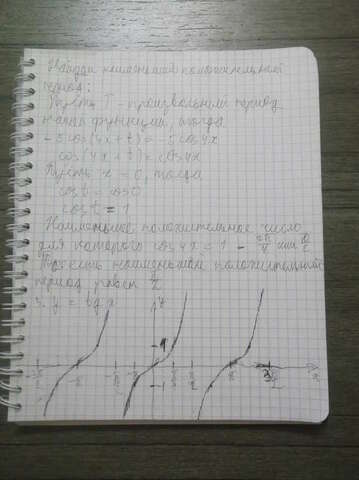 Найдём наименьший положительный
период:
Пусть T - произвольный период
нашей функции, тогда
-5cos(4x+t)=-5cos4x
cos(4x+t)=cos4x
Пусть x=0, тогда
cost=cos0
cost=1
Наименьшее положительное число
для которого cos4x=1 - 2π/4 или π/2
То есть наименьший положительный
период равен π/2
3. y=tgx